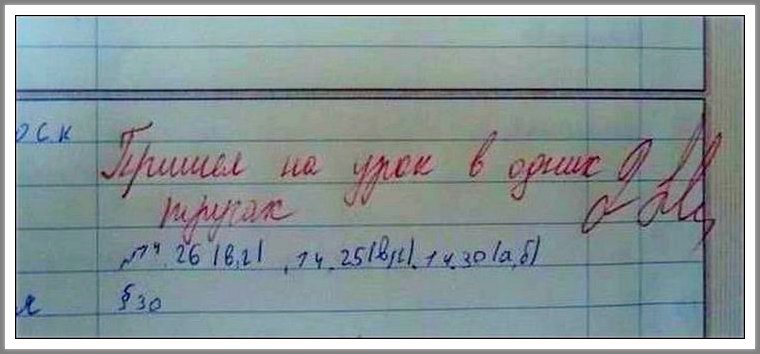 оск Пришел на урок в одних 2
трусах
№14.26(в,г), 14.25(в,г), 14.30(а,б)
я §30